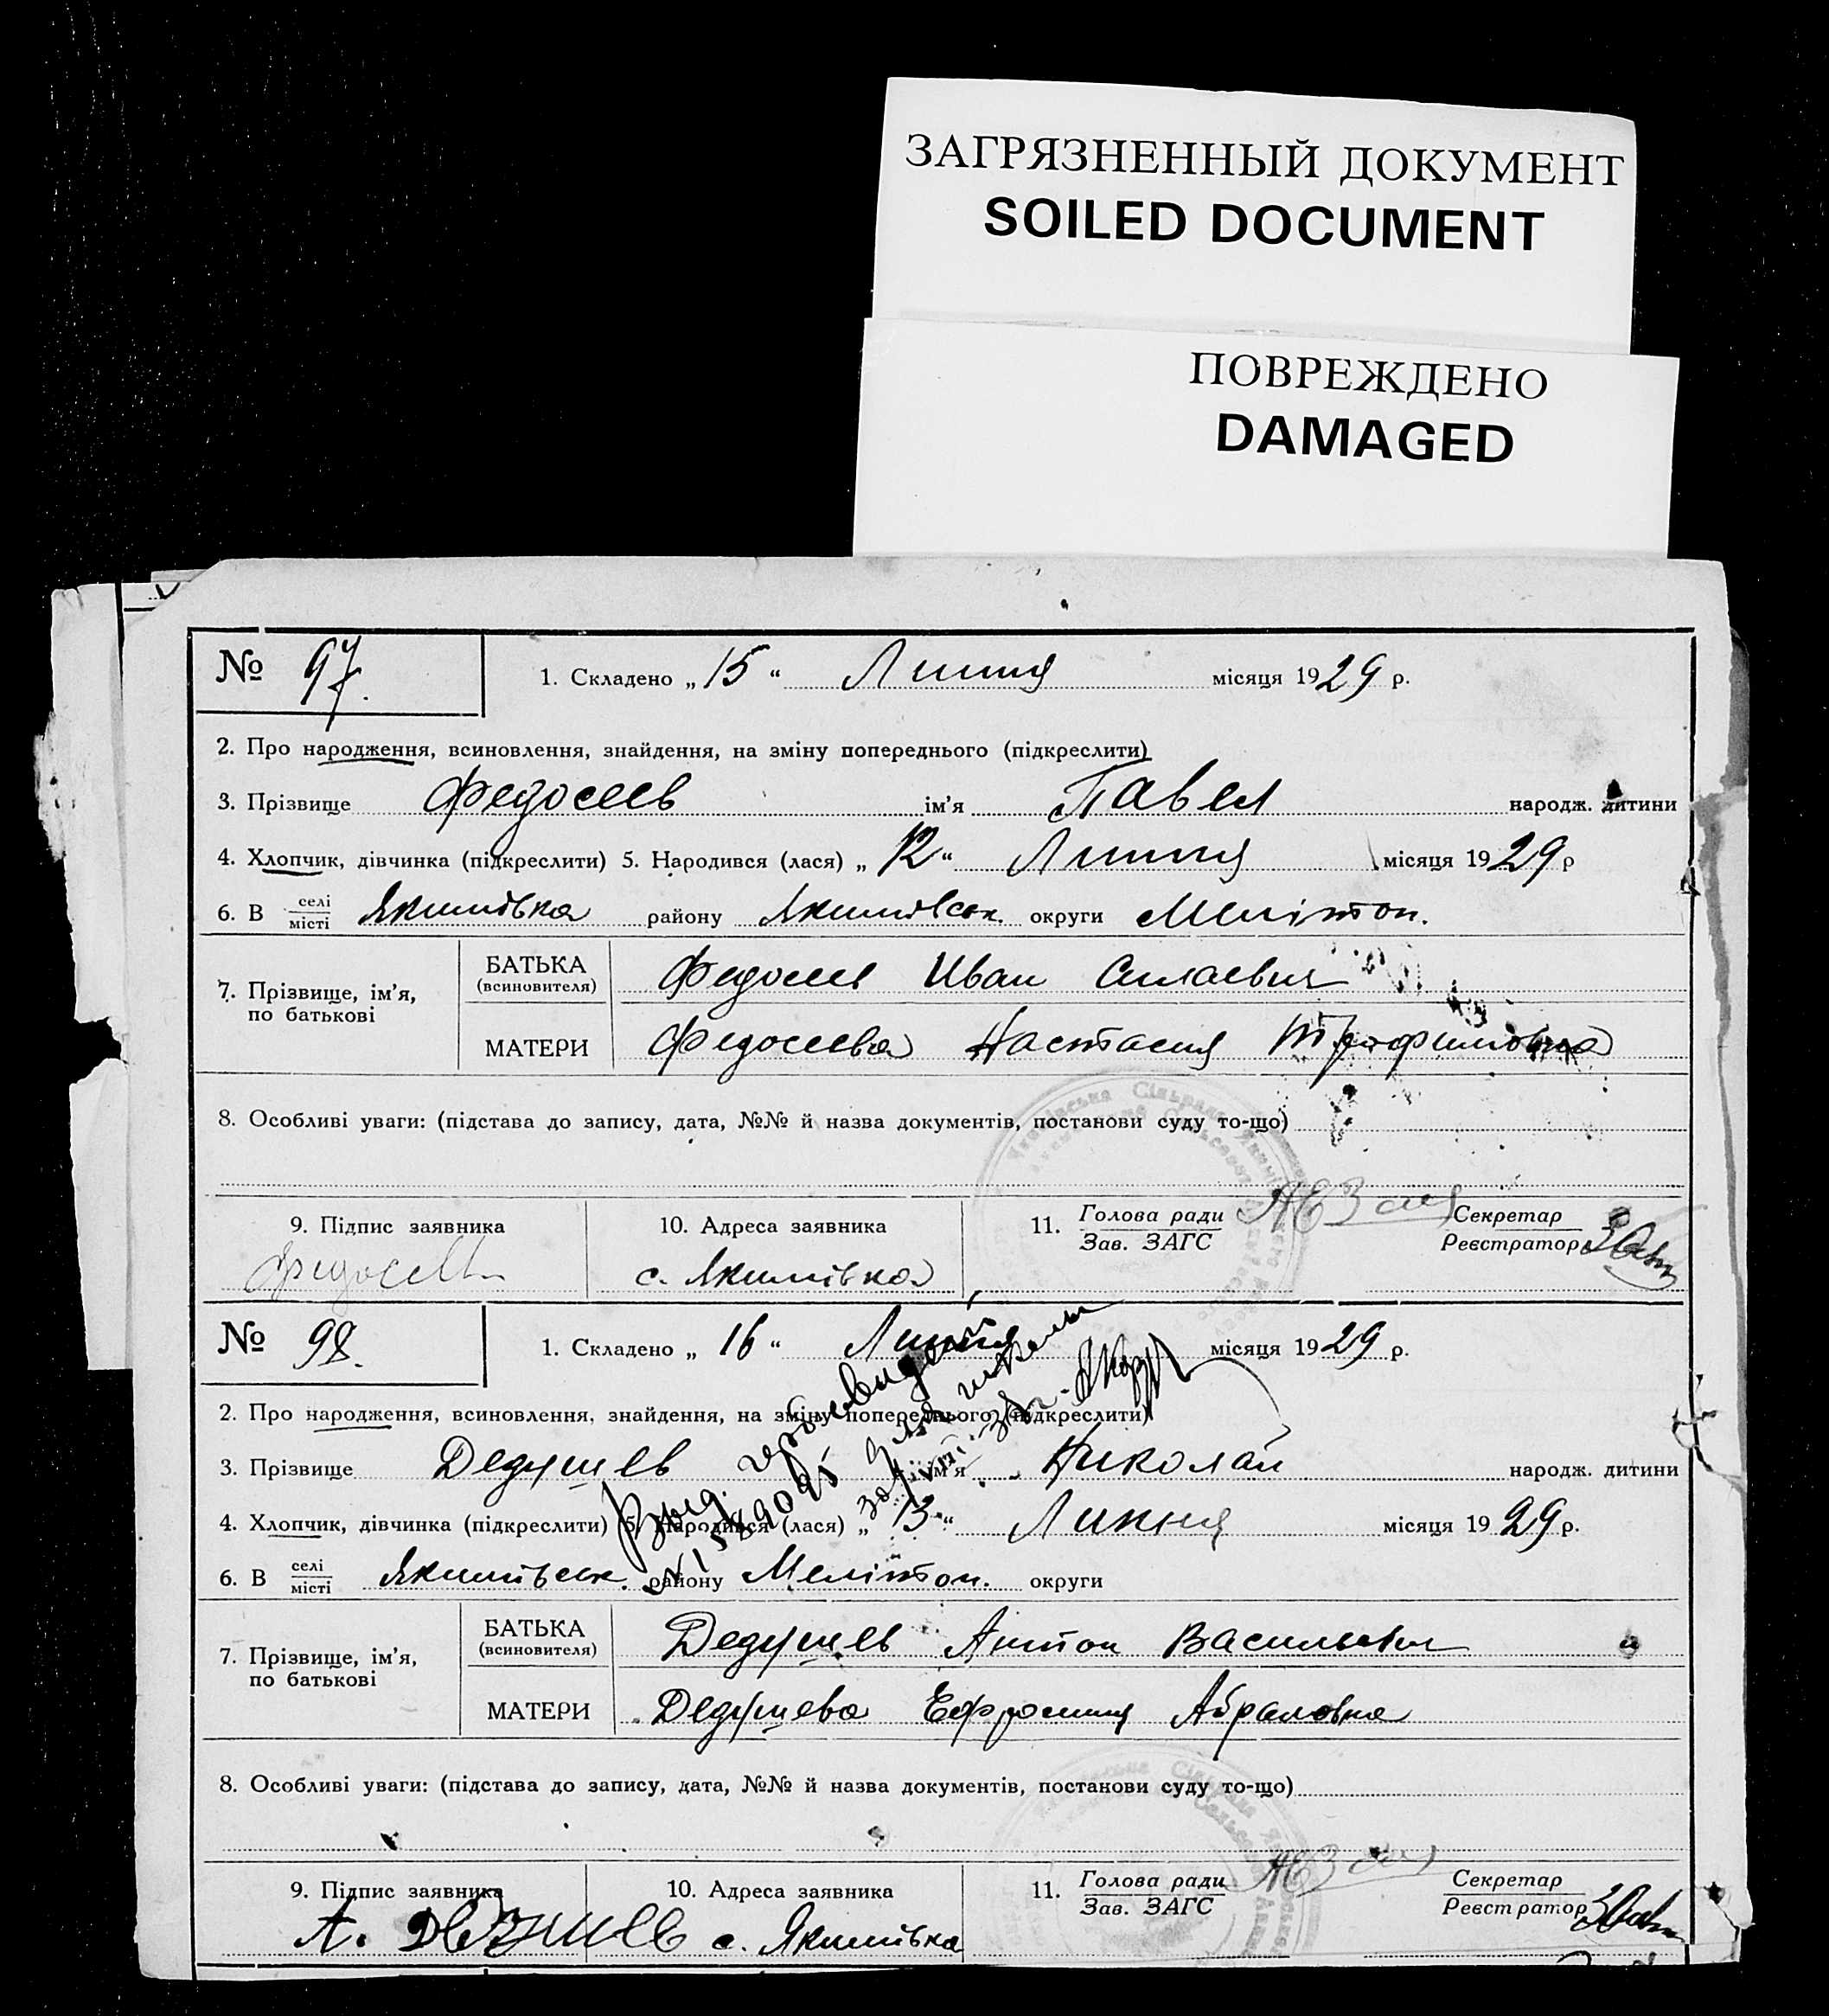 ЗАГРЯЗНЕННЫЙ ДОКУМЕНТ
SOILED DOCUMENT
ПОВРЕЖДЕНО
DAMAGED
№ 97.
1. Складено „ 15 “ Липня місяця 1929 р.
2. Про народження, всиновлення, знайдення, на зміну попереднього (підкреслити)
3. Прізвище Федосеев ім'я Павел народж. дитини
4. Хлопчик, дівчинка (підкреслити) 5. Народився (лася) „ 12 “ Липня місяця 1929 р
6. В селі місті Якимівка району Якимівськ. округи Мелітоп.
7. Прізвище, ім'я, по батькові
БАТЬКА (всиновителя) Федосеев Иван Силаевич
МАТЕРИ Федосеева Настасия Трофимовна
8. Особливі уваги: (підстава до запису, дата, №№ й назва документів, постанови суду то-що)
9. Підпис заявника 10. Адреса заявника 11. Голова ради Зав. ЗАГС Секретар Реєстратор
Федосеев с. Якимівка
№ 98.
1. Складено „ 16 “ Липня місяця 1929 р.
2. Про народження, всиновлення, знайдення, на зміну попереднього (підкреслити)
3. Прізвище Дедушев ім'я Николай народж. дитини
4. Хлопчик, дівчинка (підкреслити) 5. Народився (лася) „ 13 “ Липня місяця 1929 р.
6. В селі місті Якимівськ. району Мелітоп. округи
7. Прізвище, ім'я, по батькові
БАТЬКА (всиновителя) Дедушев Антон Васильевич
МАТЕРИ Дедушева Ефросиния Абрамовна
8. Особливі уваги: (підстава до запису, дата, №№ й назва документів, постанови суду то-що)
9. Підпис заявника 10. Адреса заявника 11. Голова ради Зав. ЗАГС Секретар Реєстратор
А. Дедушев с. Якимівка